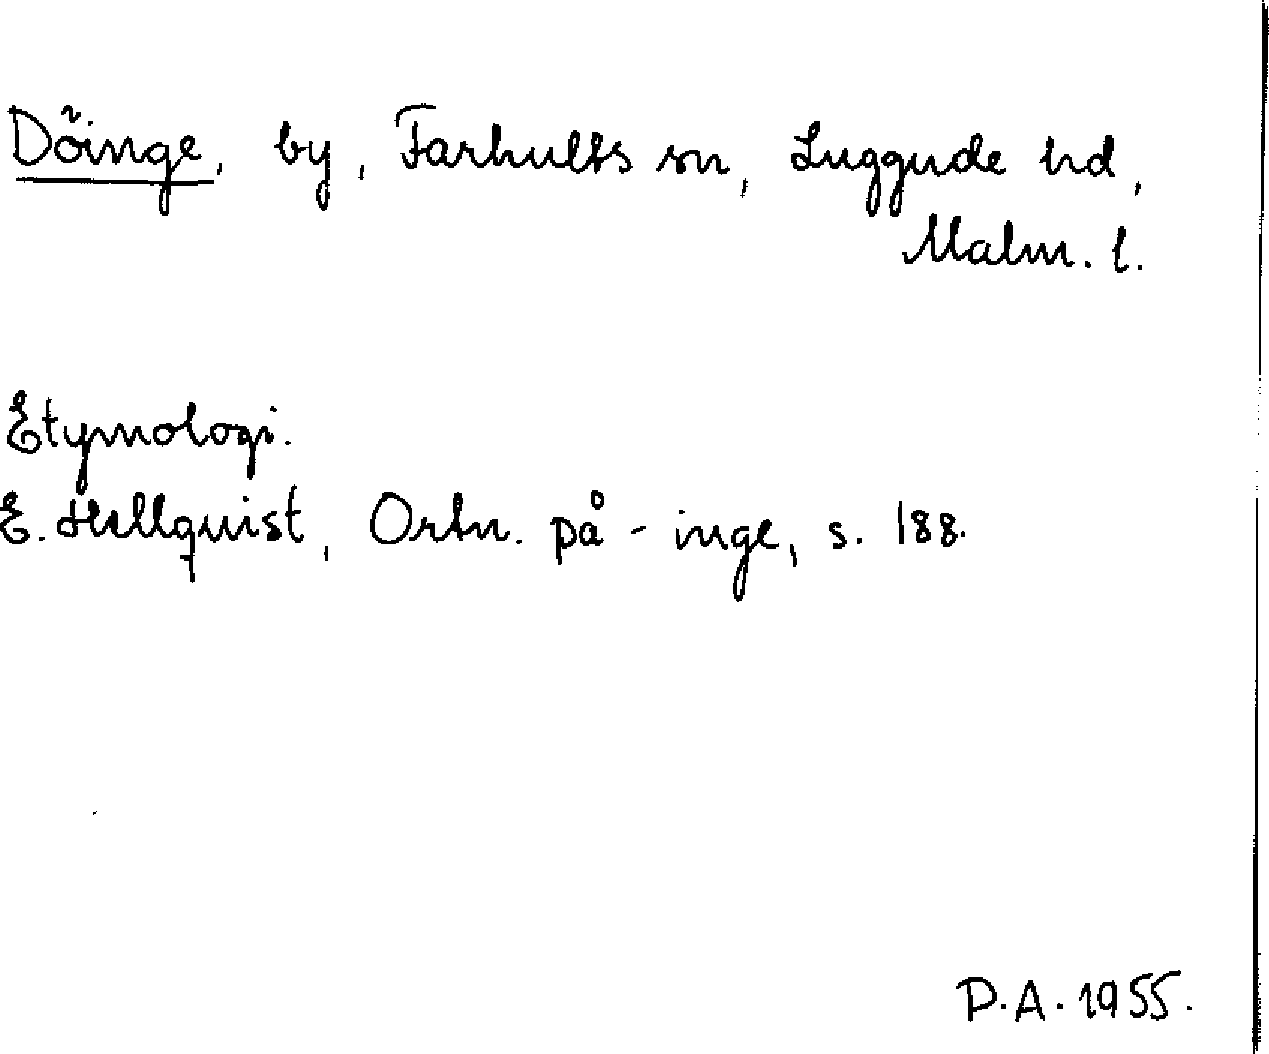 Döinge, by, Farhults sn, Luggude hd,
Malm. l.
Etymologi.
E. Hellquist, Ortn. på -inge, s. 188.
P.A. 1955.